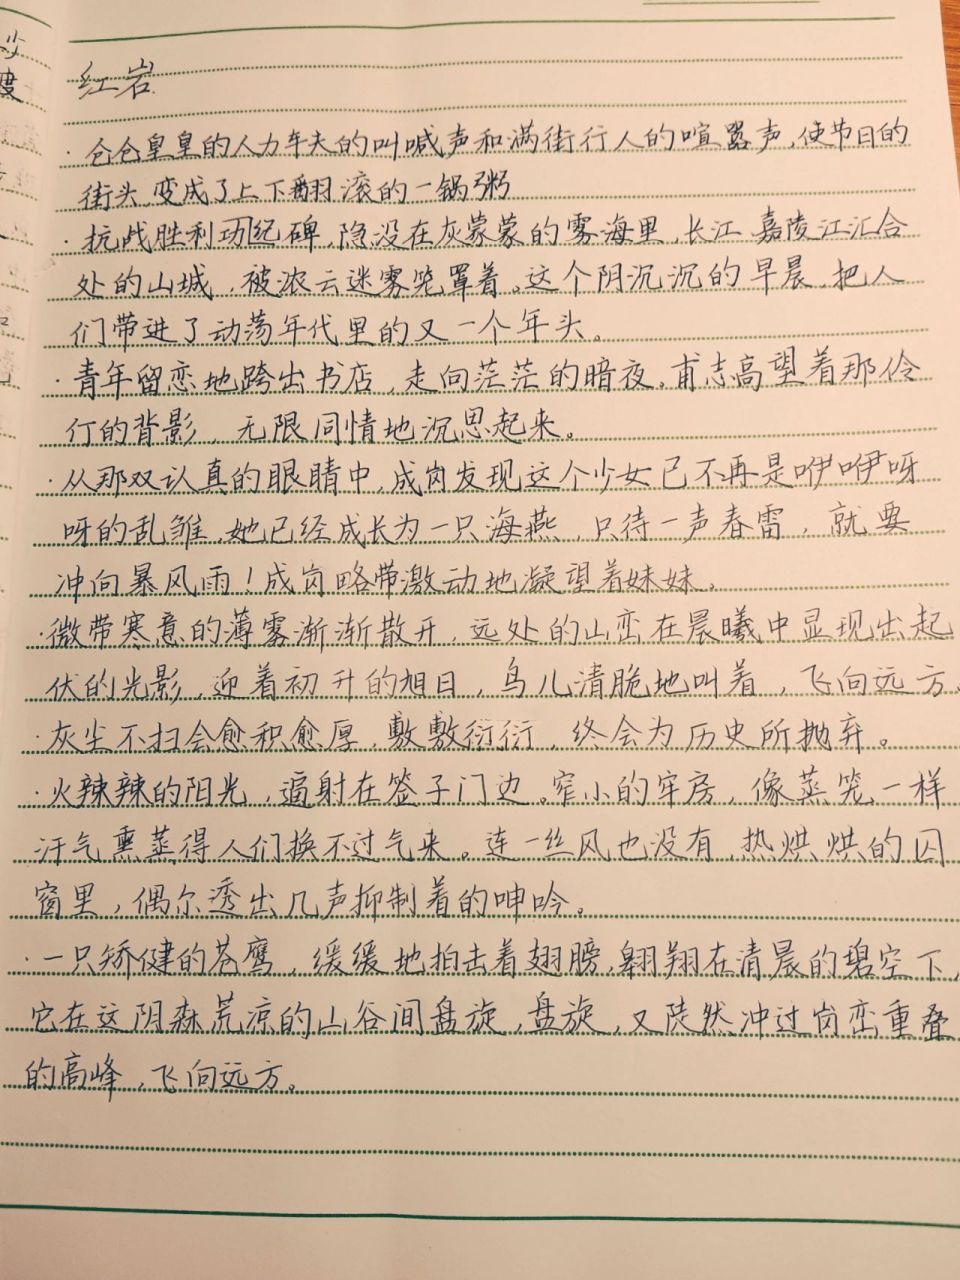 红岩
·仓仓皇皇的人力车夫的叫喊声和满街行人的喧嚣声,使节日的
街头,变成了上下翻滚的一锅粥
·抗战胜利功纪碑,隐没在灰蒙蒙的雾海里,长江、嘉陵江汇合
处的山城,被浓云迷雾笼罩着。这个阴沉沉的早晨,把人
们带进了动荡年代里的又一个年头。
·青年留恋地跨出书店,走向茫茫的暗夜。甫志高望着那伶
仃的背影,无限同情地沉思起来。
·从那双认真的眼睛中,成岗发现这个少女已不再是咿咿呀
呀的乱雏,她已经成长为一只海燕,只待一声春雷,就要
冲向暴风雨!成岗略带激动地凝望着妹妹。
·微带寒意的薄雾渐渐散开,远处的山峦在晨曦中显现出起
伏的光影,迎着初升的旭日,鸟儿清脆地叫着,飞向远方。
·灰尘不扫会愈积愈厚,敷敷衍衍,终会为历史所抛弃。
·火辣辣的阳光,逼射在签子门边。窄小的牢房,像蒸笼一样
汗气熏蒸得人们换不过气来。连一丝风也没有,热烘烘的囚
窗里,偶尔透出几声抑制着的呻吟。
·一只矫健的苍鹰,缓缓地拍击着翅膀,翱翔在清晨的碧空下,
它在这阴森荒凉的山谷间盘旋,盘旋,又陡然冲过岗峦重叠
的高峰,飞向远方。